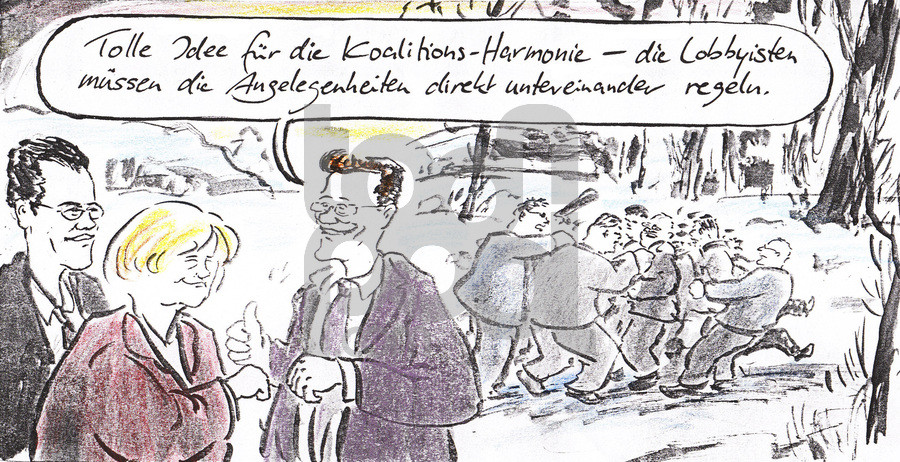 Tolle Idee für die Koalitions-Harmonie – die Lobbyisten
müssen die Angelegenheiten direkt untereinander regeln.